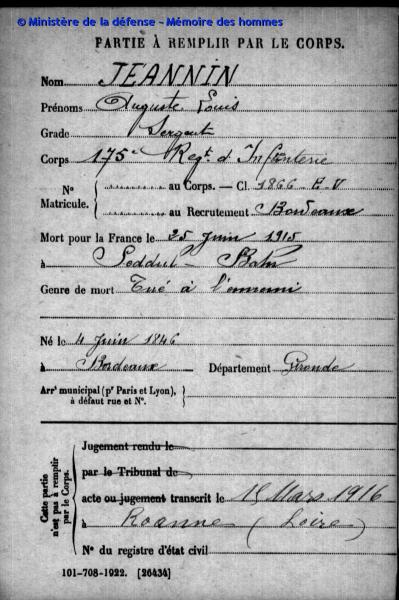 © Ministère de la défense - Mémoire des hommes
PARTIE À REMPLIR PAR LE CORPS.
Nom JEANNIN
Prénoms Auguste Louis
Grade Sergent
Corps 175e Regt. d'Infanterie
N° Matricule. { au Corps. — Cl. 1866 E.V
au Recrutement Bordeaux
Mort pour la France le 25 Juin 1915
à Seddul-Bahr
Genre de mort Tué à l'ennemi
Né le 4 Juin 1846
à Bordeaux Département Gironde
Arrt municipal (pr Paris et Lyon), à défaut rue et N°. }
Cette partie n'est pas à remplir par le Corps.
Jugement rendu le
par le Tribunal de
acte ou jugement transcrit le 15 Mars 1916
à Roanne (Loire)
N° du registre d'état civil
101-708-1922. [26434]